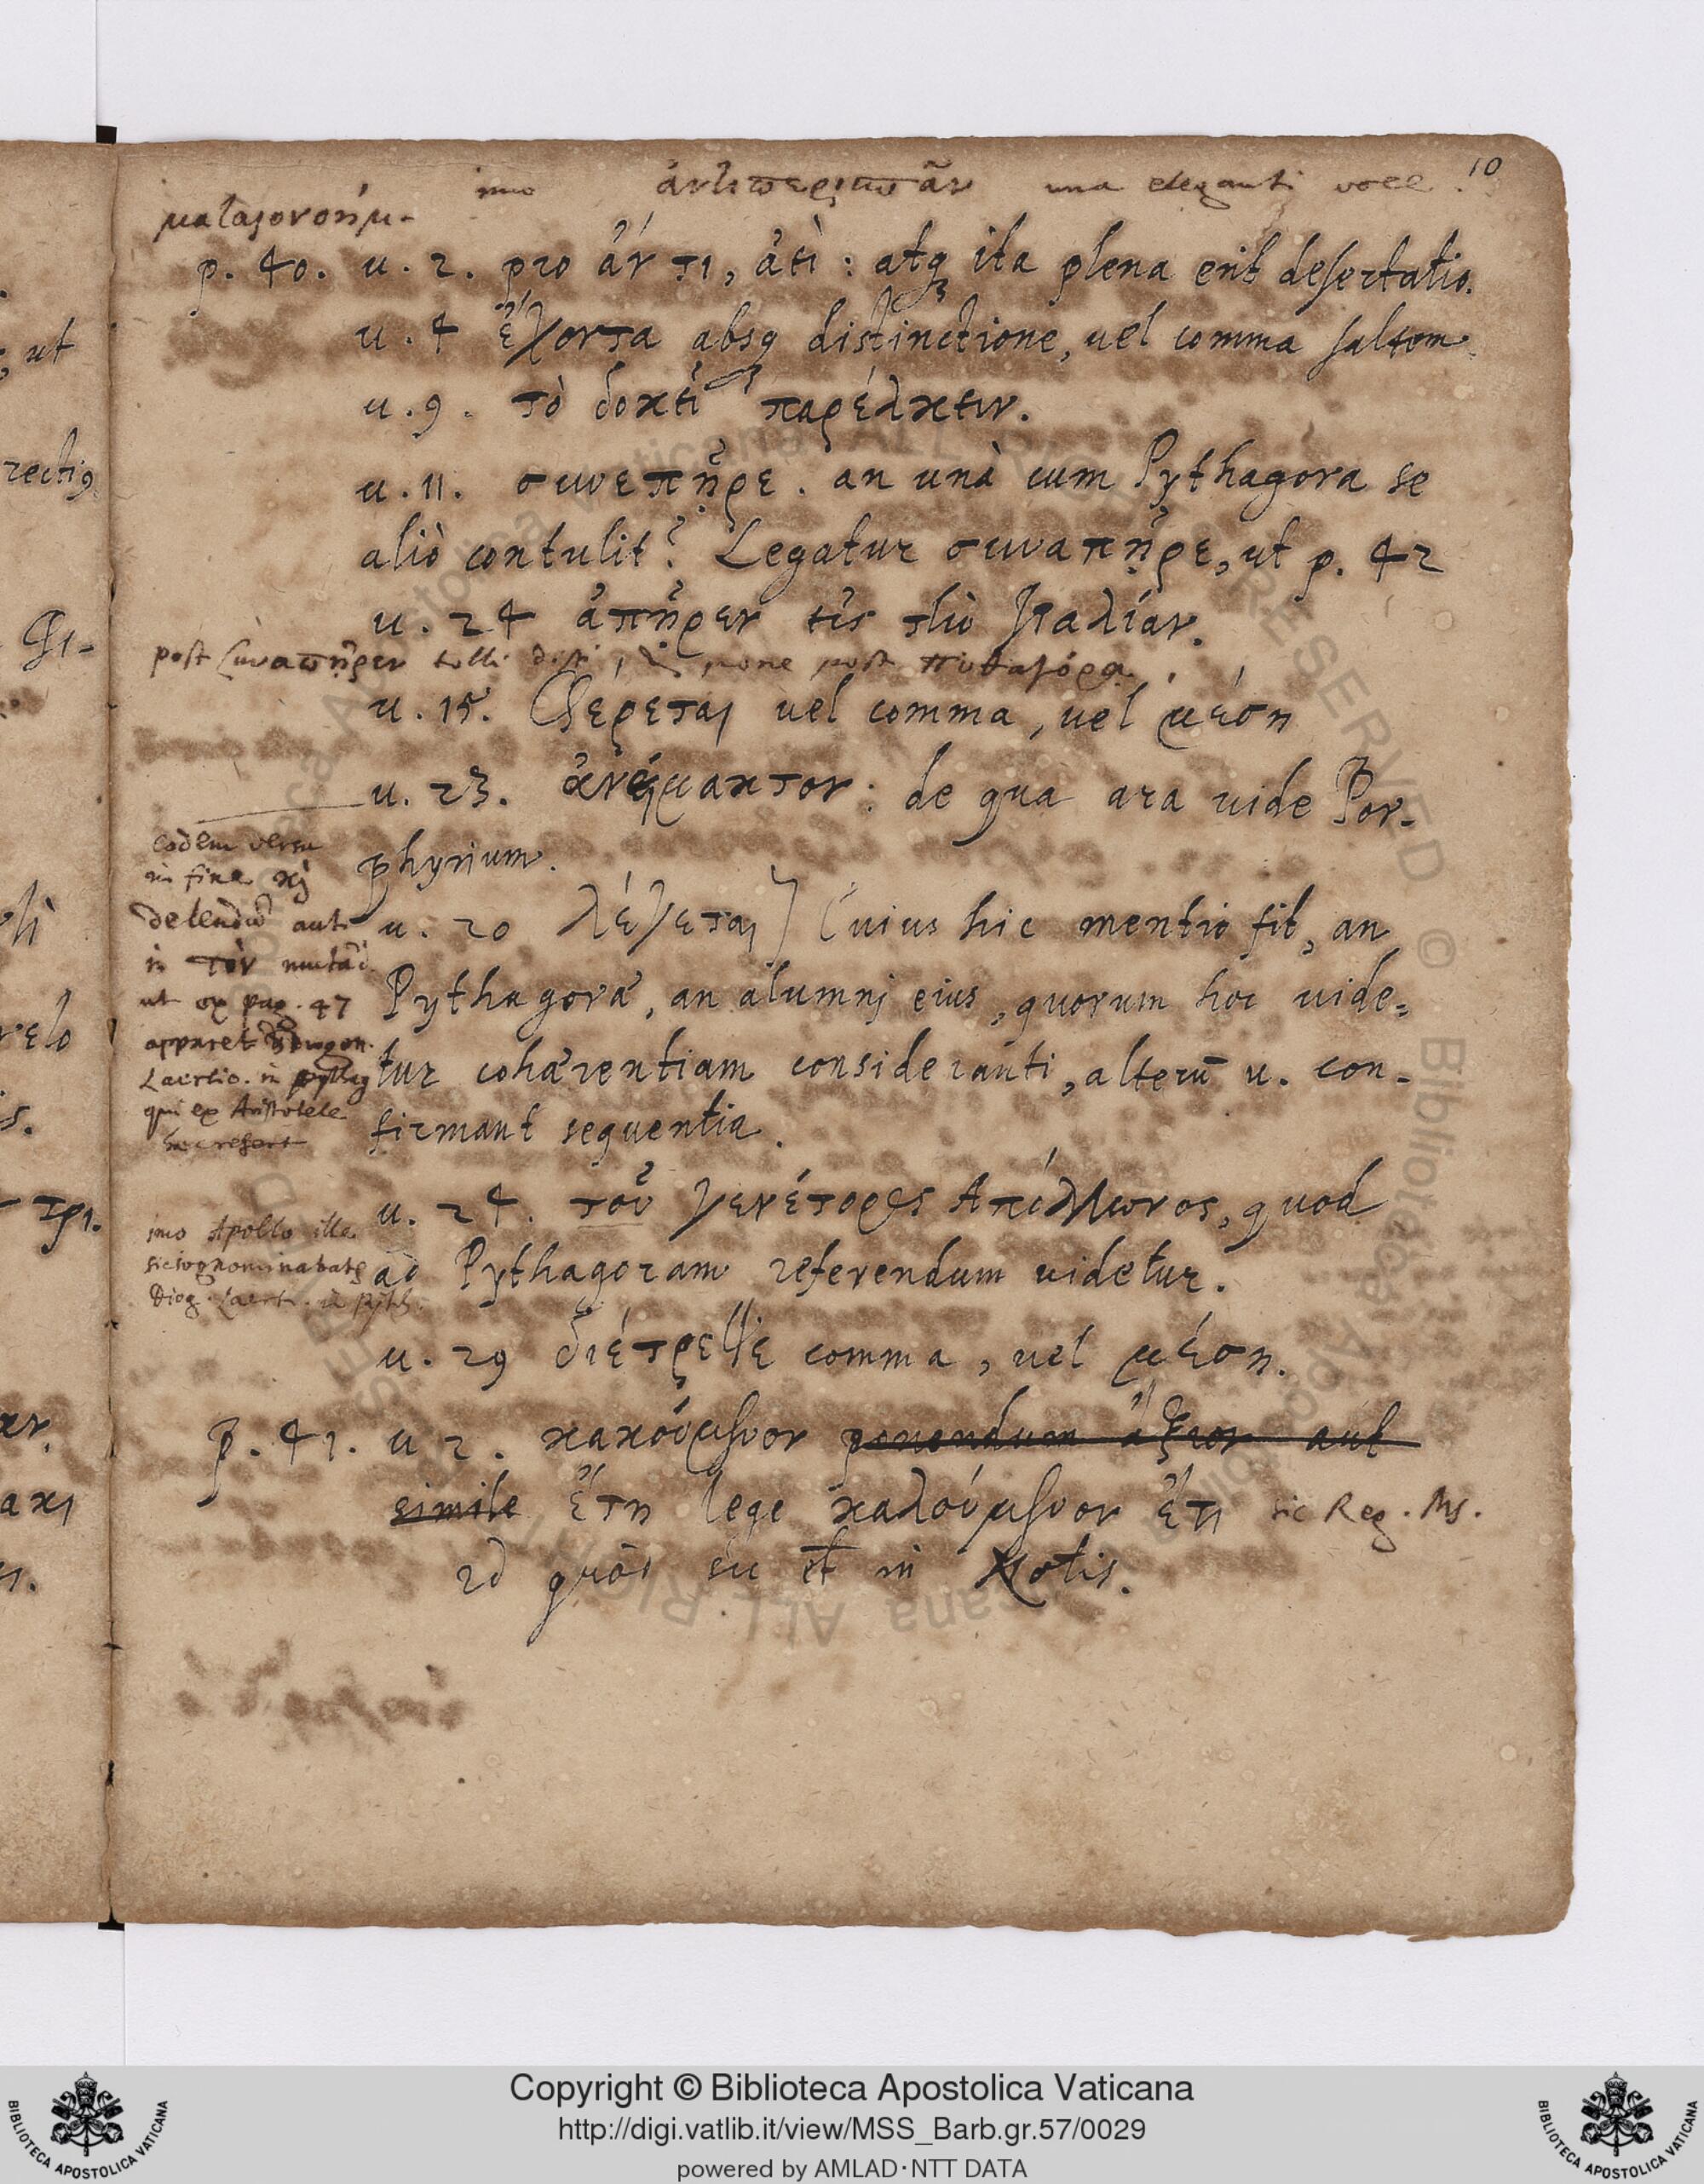 10
imo ἀντιπεριπᾶν una eleganti voce.
p. 40. u. 2. pro ἄν τι, ἀτὶ : atq ita plena erit desertatio.
u. 4 ἔχοντα absq distinctione, uel comma saltem
u. 9. τὸ δοκεῖ παρέλκειν.
u. 11. συνεπῆρε. an unà cum Pythagora se
aliò contulit? Legatur συναπῆρε, ut p. 42
u. 24 ἀπῆρεν εἰς τὴν Ἰταλίαν.
post συναπῆρεν tolli pone post πυθαγόρα.
u. 15. φέρεται uel comma, uel μέση
u. 23. ἀναίμακτον: de qua ara uide Por-
phyrium.
eodem versu
in fine καὶ
delendũ aut
in τὸν mutãd.
ut ex pag. 47
apparet Diogen.
Laertio. in pythag
qui ex Aristotele
hoc refert
u. 20 λέγεται] Cuius hic mentio fit, an
Pythagoræ, an alumnj eius, quorum hoc uide-
tur cohærentiam consideranti, alterũ u. con-
firmant sequentia.
u. 24. τοῦ γενέτορος Ἀπόλλωνος, quod
ad Pythagoram referendum uidetur.
imo Apollo ille
sic cognominabatq
Diog. Laert. in Pyth.
u. 29 διέτρεψε comma, uel μέση.
p. 41. u 2. κακούμενον ponendum ἄξιον aut
simile ἔτη lege καλούμενον ἔτι sic Reg. Ms.
id quod sic et in Notis.
Copyright © Biblioteca Apostolica Vaticana
http://digi.vatlib.it/view/MSS_Barb.gr.57/0029
powered by AMLAD·NTT DATA
BIBLIOTECA APOSTOLICA VATICANA
BIBLIOTECA APOSTOLICA VATICANA